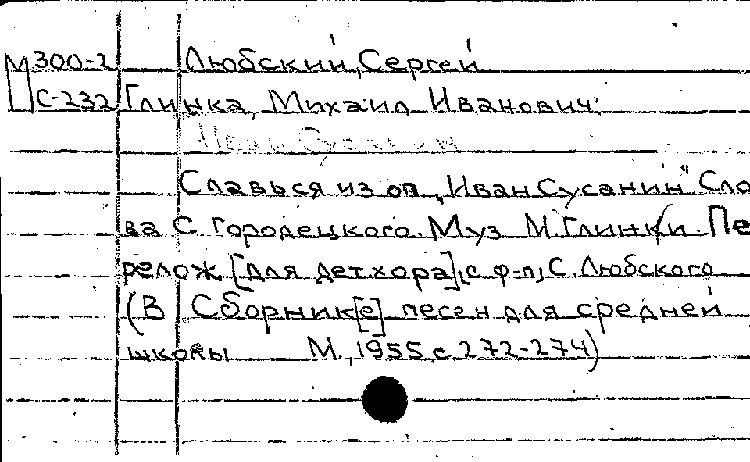 М300-2 Любский, Сергей
С-232 Глинка, Михаил Иванович.
Славься из оп. „Иван Сусанин" Сло
ва С. Городецкого. Муз М. Глинки. Пе
релож [для дет хора], с ф-п, С. Любского
(В Сборник[е] песен для средней
школы М., 1955 с 272-274)